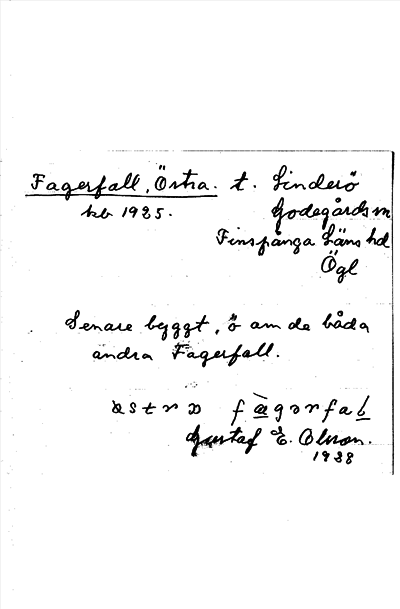 Fagerfall, Östra. t. Sinderö
kb 1925. Godegårds sn
Finspånga Läns hd
Ögl
Senare byggt, ö om de båda
andra Fagerfall.
Gustaf E. Olson.
1938